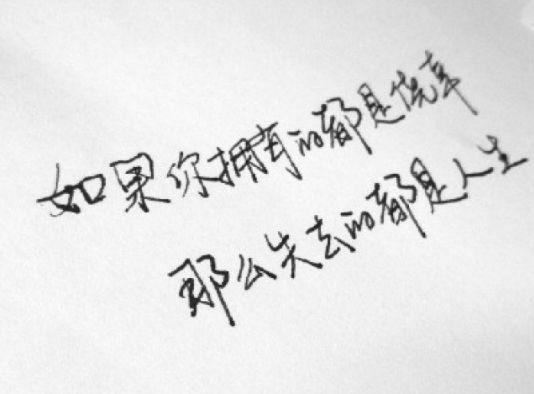 如果你拥有的都是侥幸
那么失去的都是人生